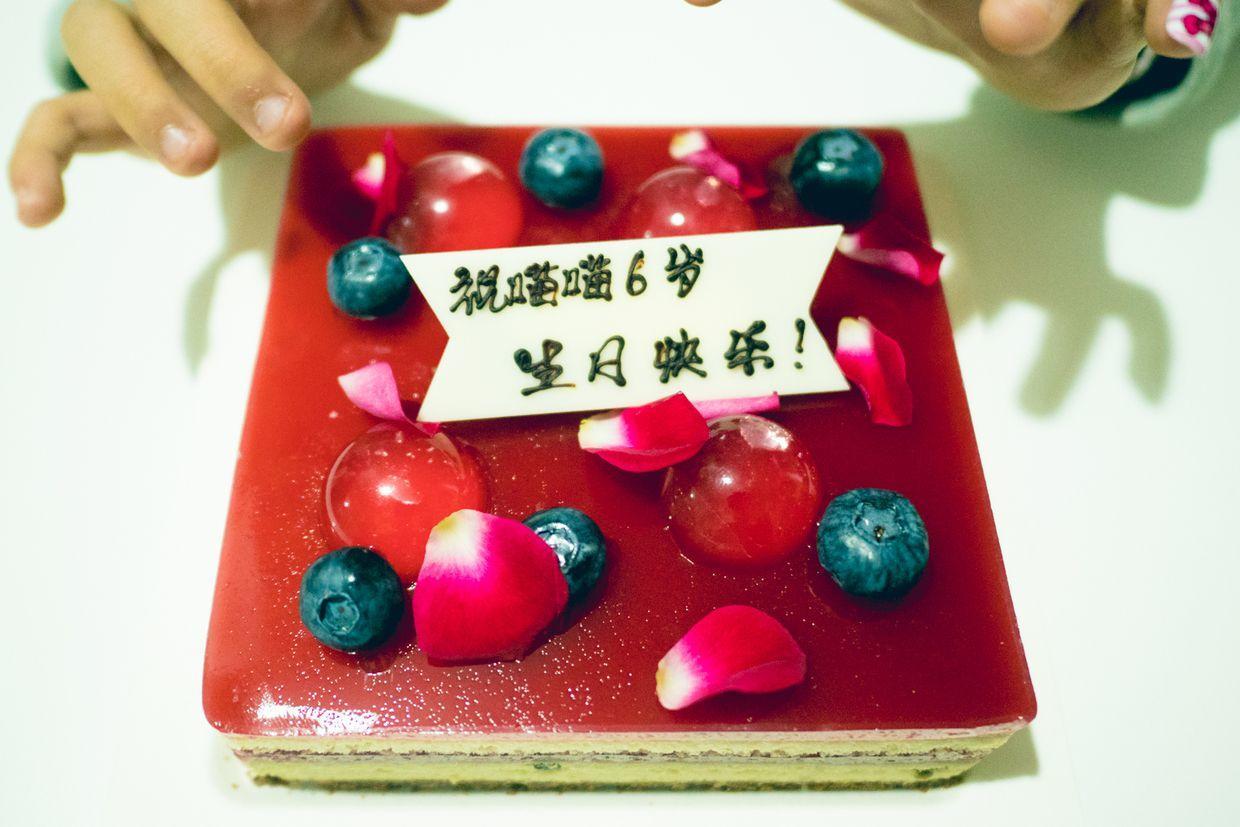 祝喵喵6岁
生日快乐!